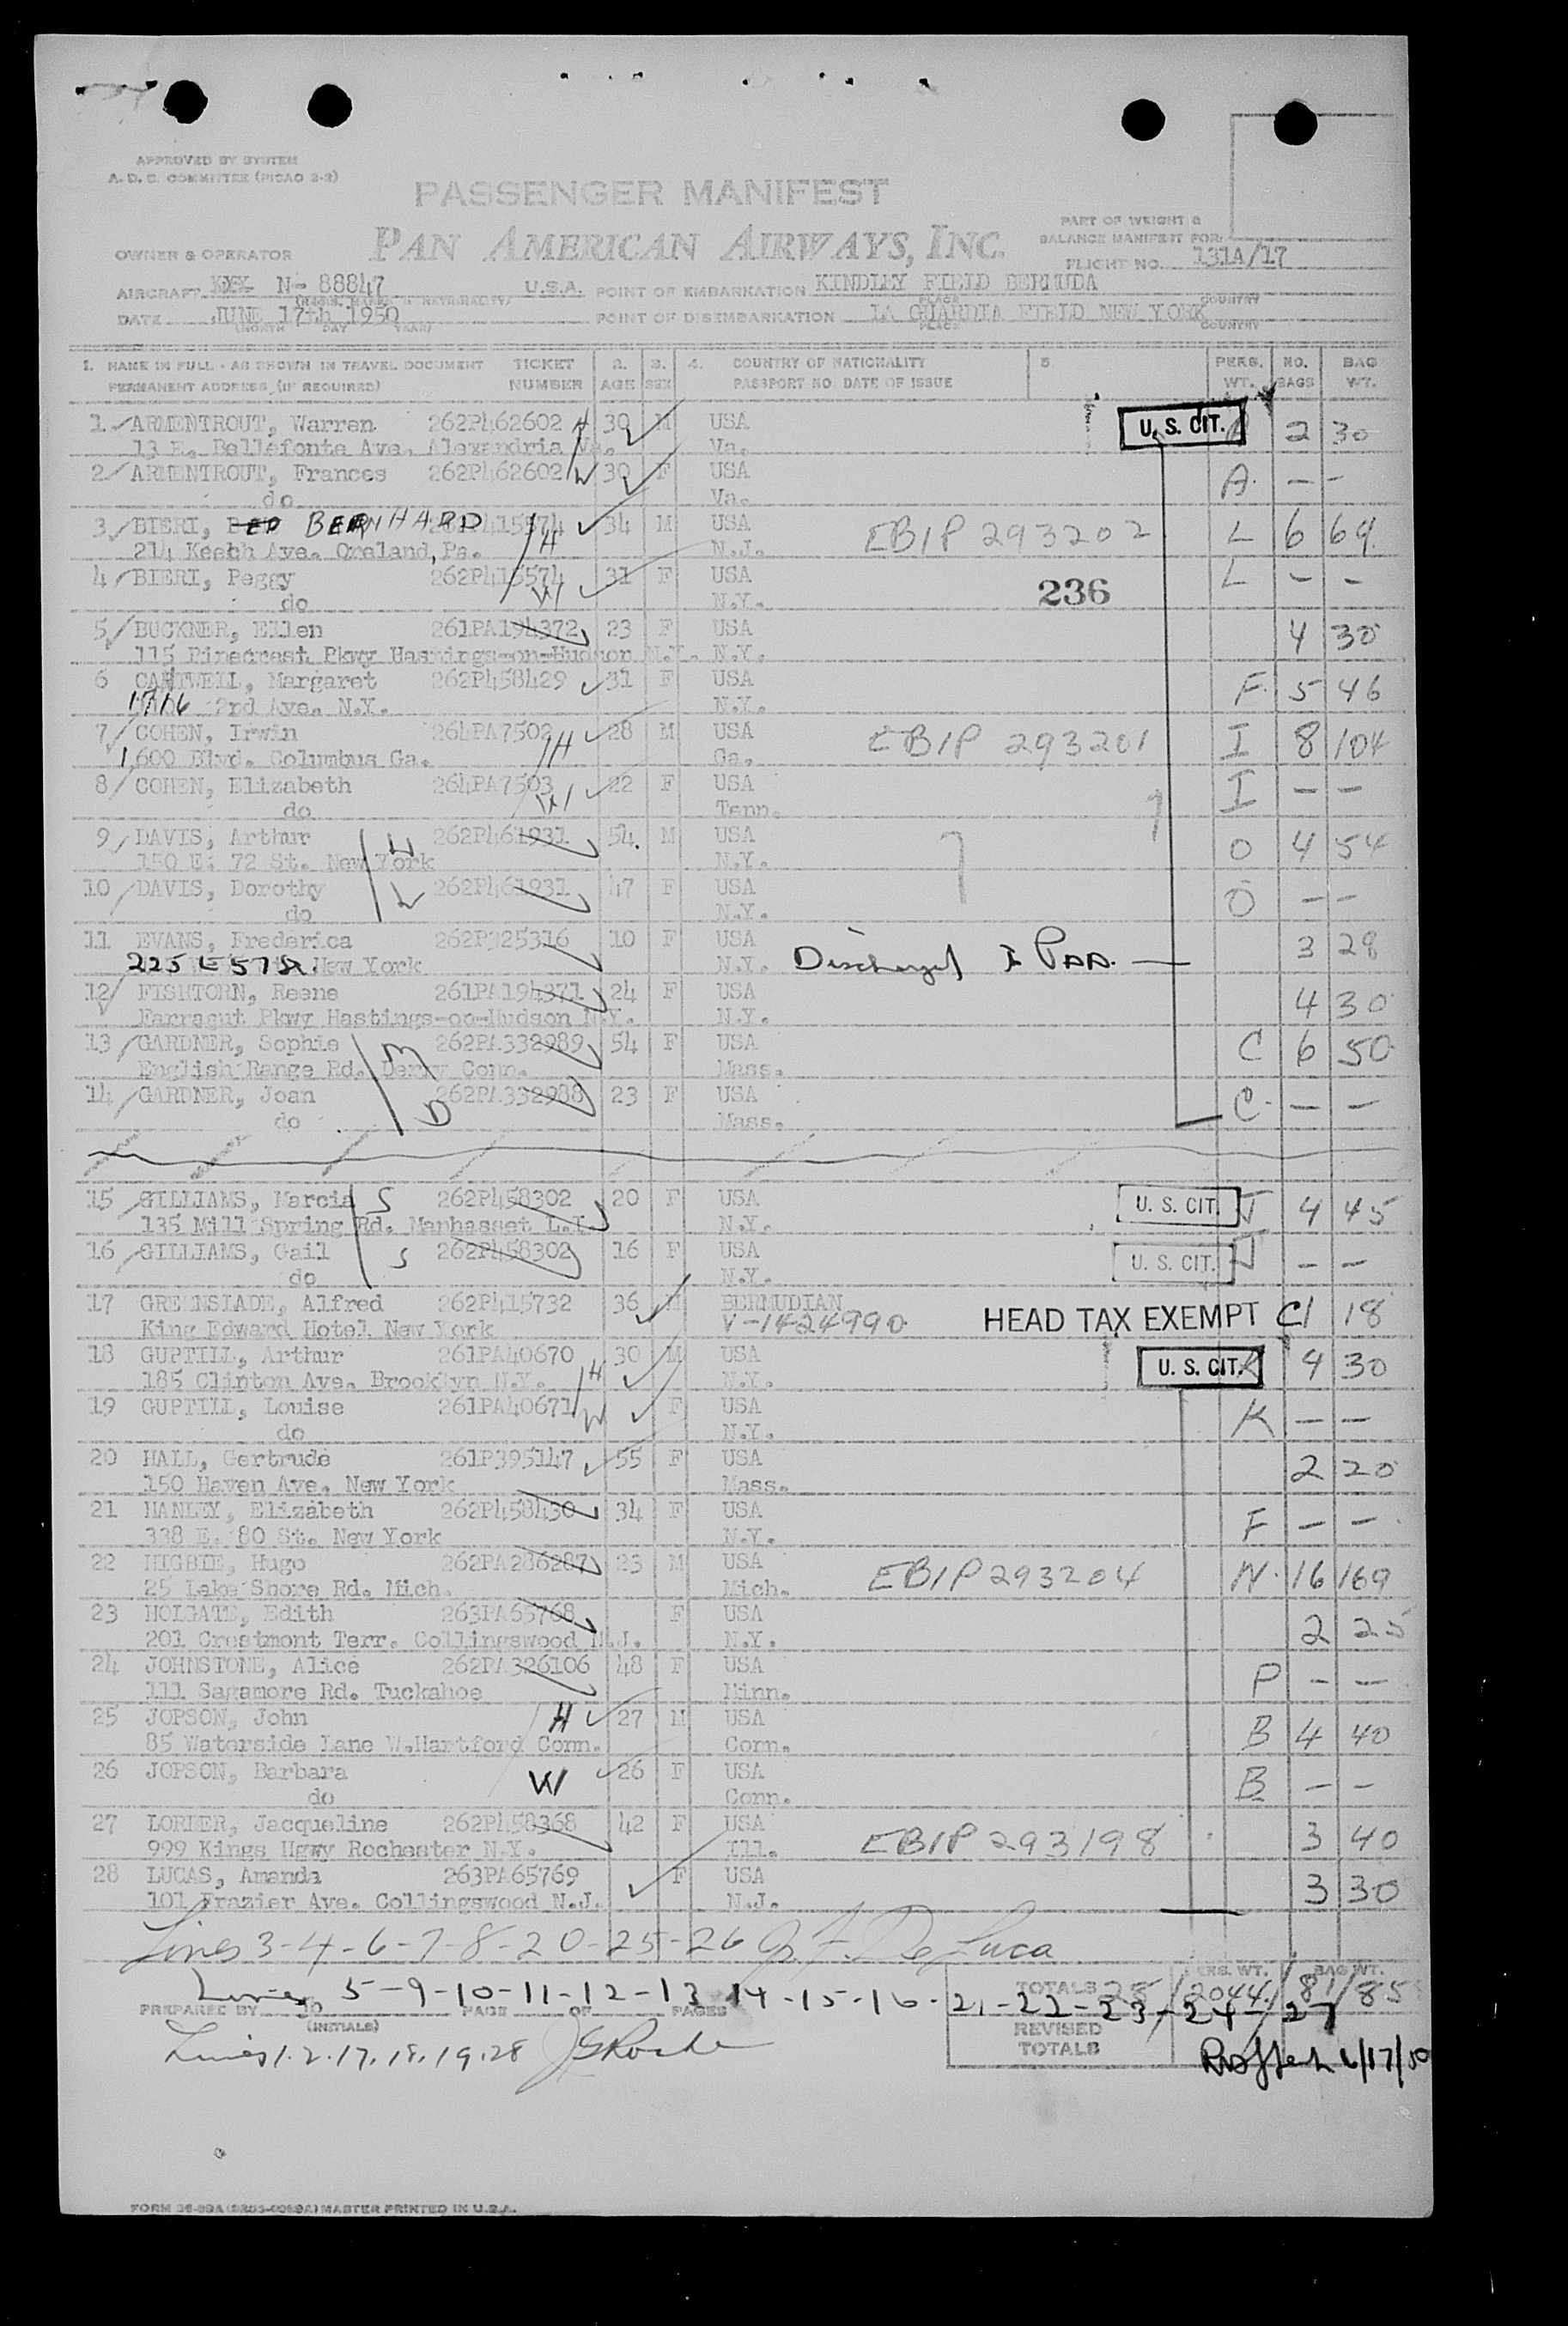 APPROVED BY SYSTEM
A. D. S. COMMITTEE (PICAO 2-2)
PASSENGER MANIFEST
PAN AMERICAN AIRWAYS, INC.
OWNER & OPERATOR
PART OF WEIGHT &
BALANCE MANIFEST FOR:
FLIGHT NO. 131A/17
AIRCRAFT N- 88847 U.S.A. POINT OF EMBARKATION KINDLEY FIELD BERMUDA
DATE JUNE 17th 1950 POINT OF DISEMBARKATION LA GUARDIA FIELD NEW YORK
(MONTH DAY YEAR) PLACE COUNTRY
1. NAME IN FULL - AS SHOWN IN TRAVEL DOCUMENT TICKET 2. 3. 4. COUNTRY OF NATIONALITY 5. PERS. NO. BAG
PERMANENT ADDRESS (IF REQUIRED) NUMBER AGE SEX PASSPORT NO. DATE OF ISSUE WT. BAGS WT.
1 ARMENTROUT, Warren 262P462602 H 30 M USA U. S. CIT. A 2 30
13 E. Bellefonte Ave. Alexandria Va. Va.
2 ARMENTROUT, Frances 262P462602 W 30 F USA A - -
do Va.
3 BIERI, BERNHARD 34 M USA EBIP 293202 L 6 69
214 Keech Ave. Oreland, Pa. H N.J.
4 BIERI, Peggy 262P415574 31 F USA 236 L - -
do W N.Y.
5 BUCKNER, Ellen 261PA194372 23 F USA 4 30
115 Pinecrest Pkwy Hastings-on-Hudson N.Y. N.Y.
6 CANTWELL, Margaret 262P458429 31 F USA F 5 46
1716 2nd Ave. N.Y. N.Y.
7 COHEN, Irwin 264PA7502 28 M USA EBIP 293201 I 8 104
1600 Blvd. Columbus Ga. H Ga.
8 COHEN, Elizabeth 264PA7503 22 F USA I - -
do W Tenn.
9 DAVIS, Arthur 262P461931 54 M USA O 4 54
150 E. 72 St. New York N.Y.
10 DAVIS, Dorothy 262P461931 47 F USA O - -
do N.Y.
11 EVANS, Frederica 262P325316 10 F USA 3 28
225 E 57 St. New York N.Y.
12 FISHTORN, Reene 261PA194371 24 F USA 4 30
Farragut Pkwy Hastings-on-Hudson N.Y. N.Y.
13 GARDNER, Sophie M 262PA332989 54 F USA C 6 50
English Range Rd. Derry Conn. Mass.
14 GARDNER, Joan D 262PA332988 23 F USA C - -
do Mass.
15 GILLIAMS, Marcia S 262P458302 20 F USA U. S. CIT. J 4 45
135 Mill Spring Rd. Manhasset L.I. N.Y.
16 GILLIAMS, Gail S 262P458302 16 F USA U. S. CIT. J - -
do N.Y.
17 GREENSIADE, Alfred 262P415732 36 M BERMUDIAN HEAD TAX EXEMPT 1 18
King Edward Hotel New York V-1424990
18 GUPTILL, Arthur 261PA40670 30 M USA U. S. CIT. K 4 30
185 Clinton Ave. Brooklyn N.Y. H N.Y.
19 GUPTILL, Louise 261PA40671 W F USA K - -
do N.Y.
20 HALL, Gertrude 261P395147 55 F USA 2 20
150 Haven Ave. New York Mass.
21 HANLEY, Elizabeth 262P458430 34 F USA F - -
338 E. 80 St. New York N.Y.
22 HIGBIE, Hugo 262PA286287 23 M USA EBIP 293204 N 16 169
25 Lake Shore Rd. Mich. Mich.
23 HOLGATE, Edith 263PA65768 F USA 2 25
201 Crestmont Terr. Collingswood N.J. N.Y.
24 JOHNSTONE, Alice 262PA326106 48 F USA P - -
111 Sagamore Rd. Tuckahoe Minn.
25 JOPSON, John H 27 M USA B 4 40
85 Waterside Lane W.Hartford Conn. Conn.
26 JOPSON, Barbara W 26 F USA B - -
do Conn.
27 LORIER, Jacqueline 262P458368 42 F USA EBIP 293198 3 40
999 Kings Hgwy Rochester N.Y. Ill.
28 LUCAS, Amanda 263PA65769 F USA 3 30
101 Frazier Ave. Collingswood N.J. N.J.
Lines 3-4-6-7-8-20-25-26 De Luca
PERS. WT. BAG WT.
TOTALS 28/2044/81/85
Lines 5-9-10-11-12-13 14-15-16-21-22-23-24-27
PREPARED BY PAGE OF PAGES
(INITIALS)
REVISED
TOTALS
Lines 1.2.17.18.19.28
6/17/50
FORM MASTER PRINTED IN U.S.A.